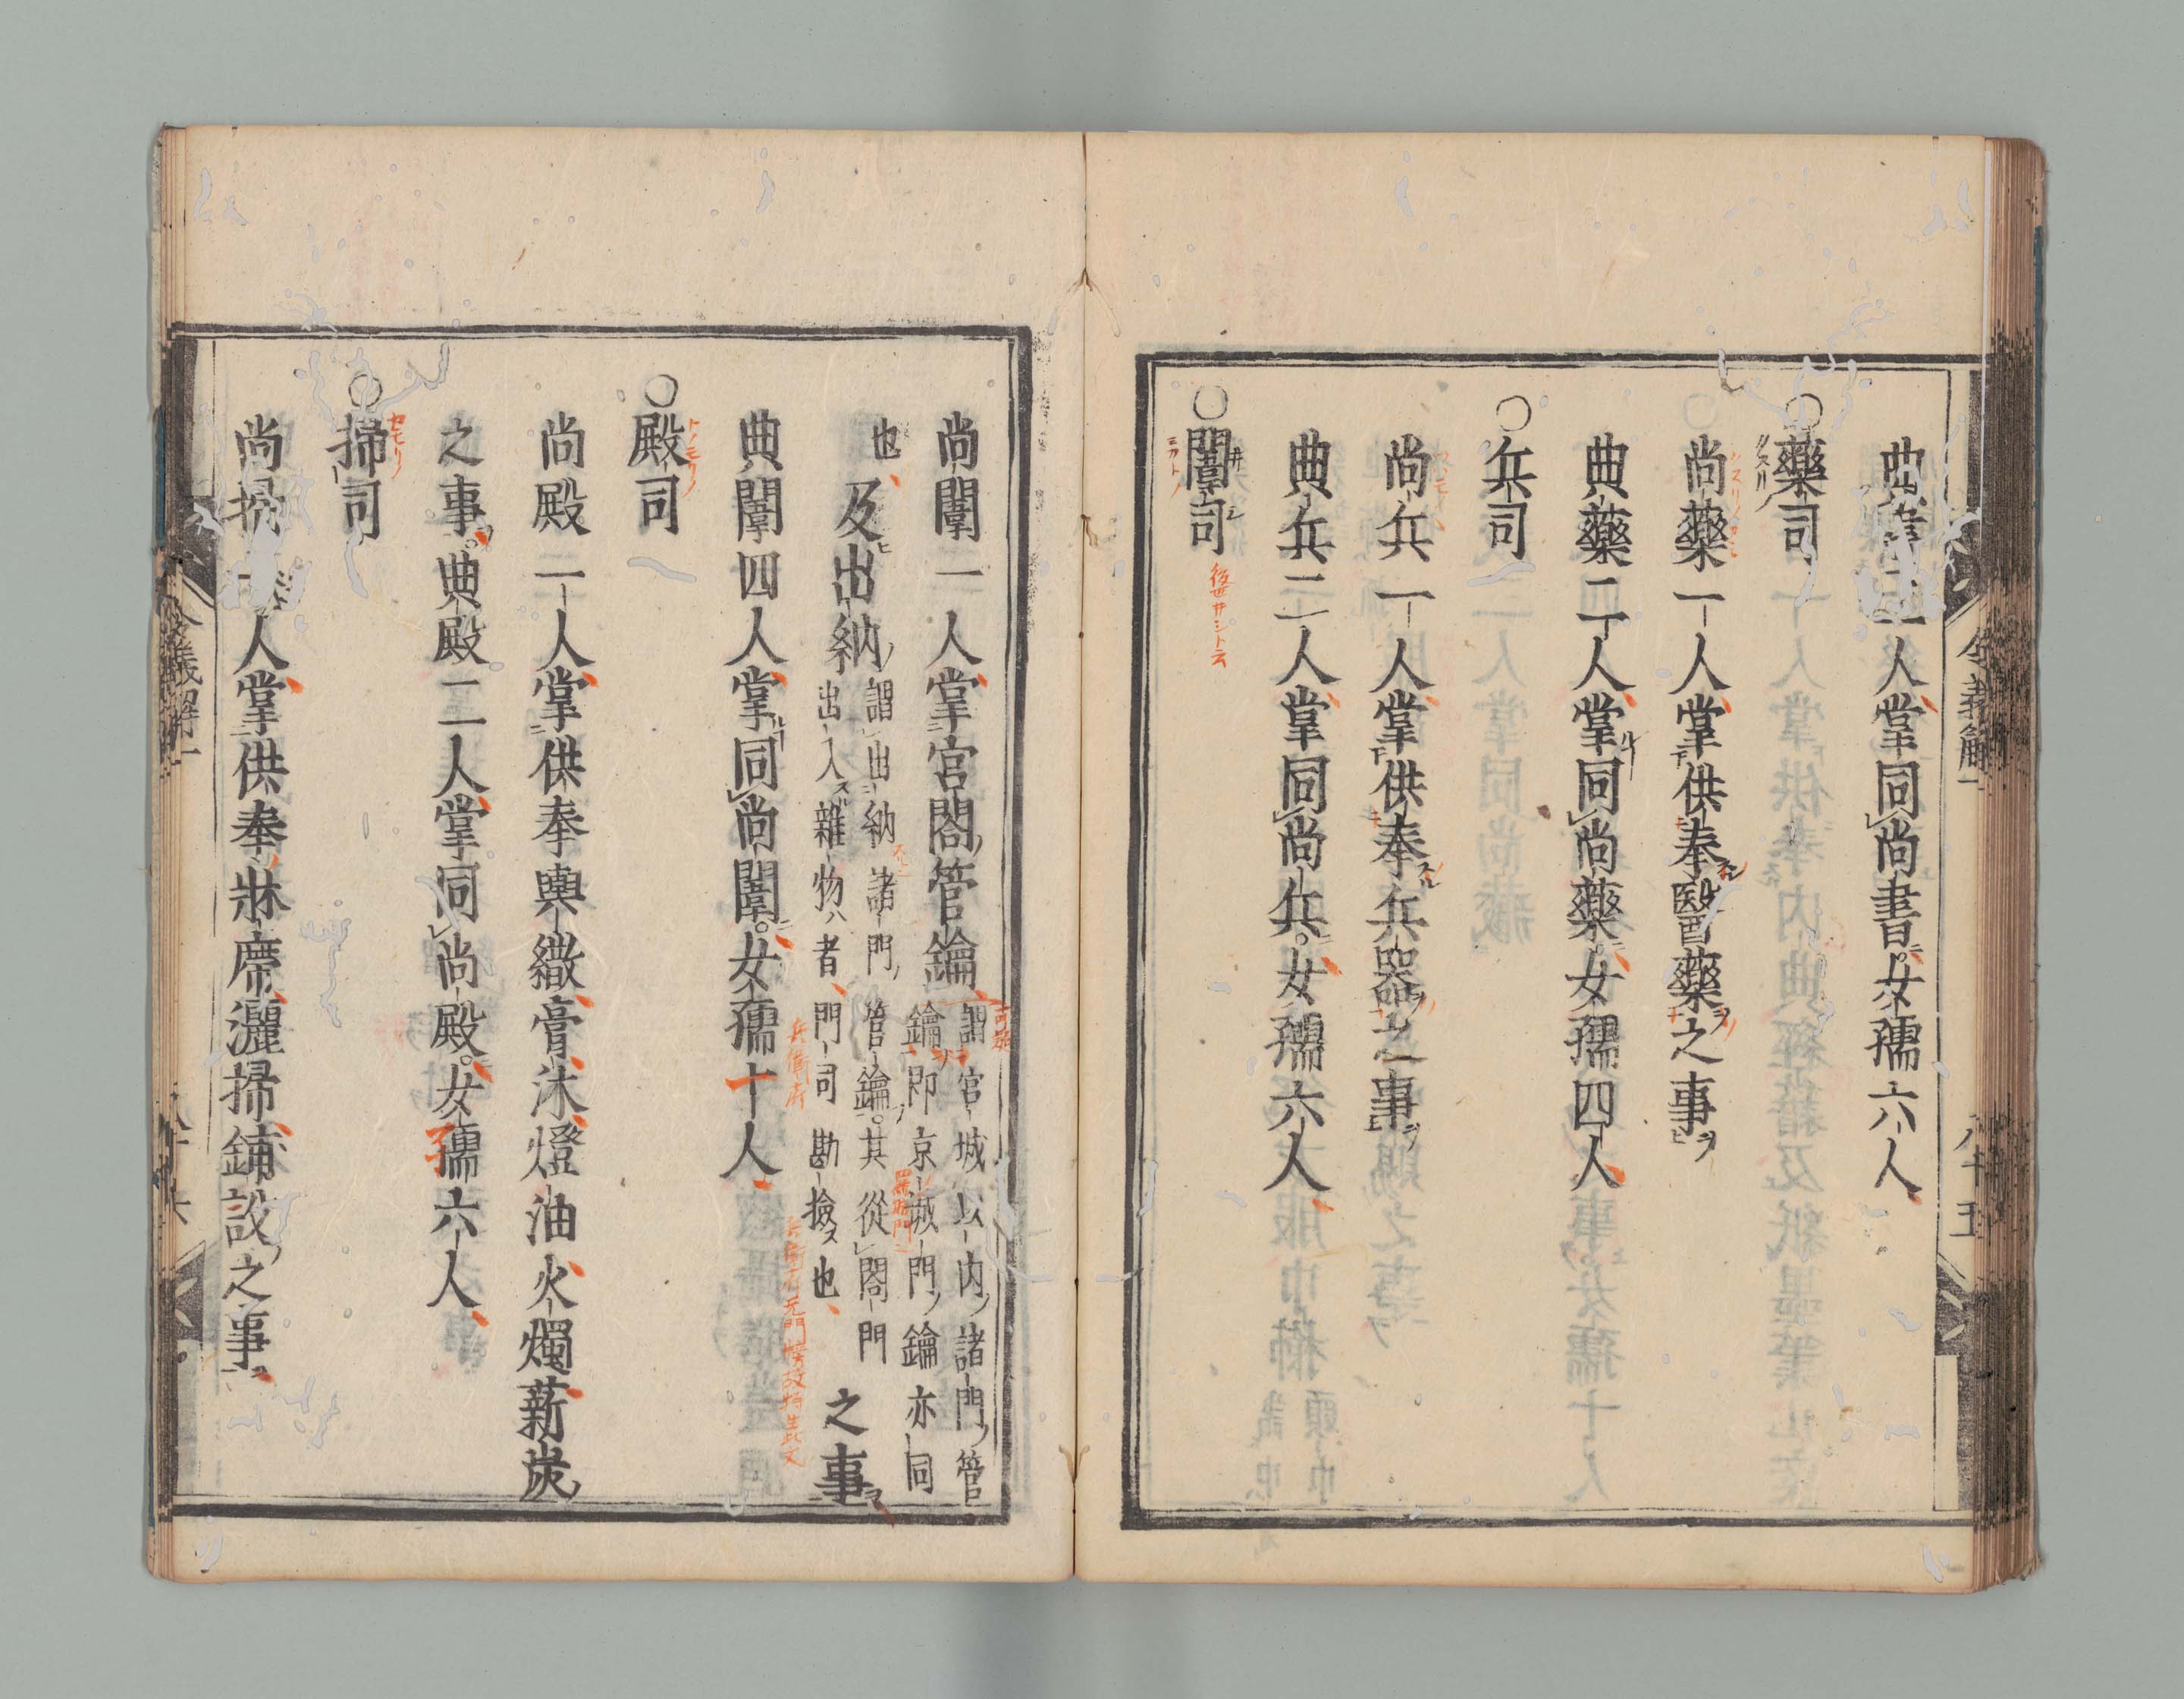 典書二人掌同尚書。女孺六人
○藥司
尚藥一人掌供奉醫藥之事
典藥二人掌同尚藥。女孺四人
○兵司
尚兵一人掌供奉兵器之事
典兵二人掌同尚兵。女孺六人
○闈司
後世井シト云
令義解一
八十五
尚闈一人掌宮閤管鑰
謂宮城以内諸門管
鑰即京城門鑰亦同
也
及出納
謂出納諸門管鑰。其從閤門
出入雜物者門司勘檢也
之事
兵衛府
典闈四人掌同尚闈。女孺十人
○殿司
尚殿一人掌供奉輿繖膏沐燈油火燭薪炭
之事。典殿二人掌同尚殿。女孺六人
○掃司
尚掃一人掌供奉牀席灑掃鋪設之事
令義解一
八十六